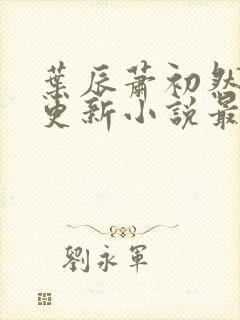 葉辰蕭初然
更新小說最
劉永軍